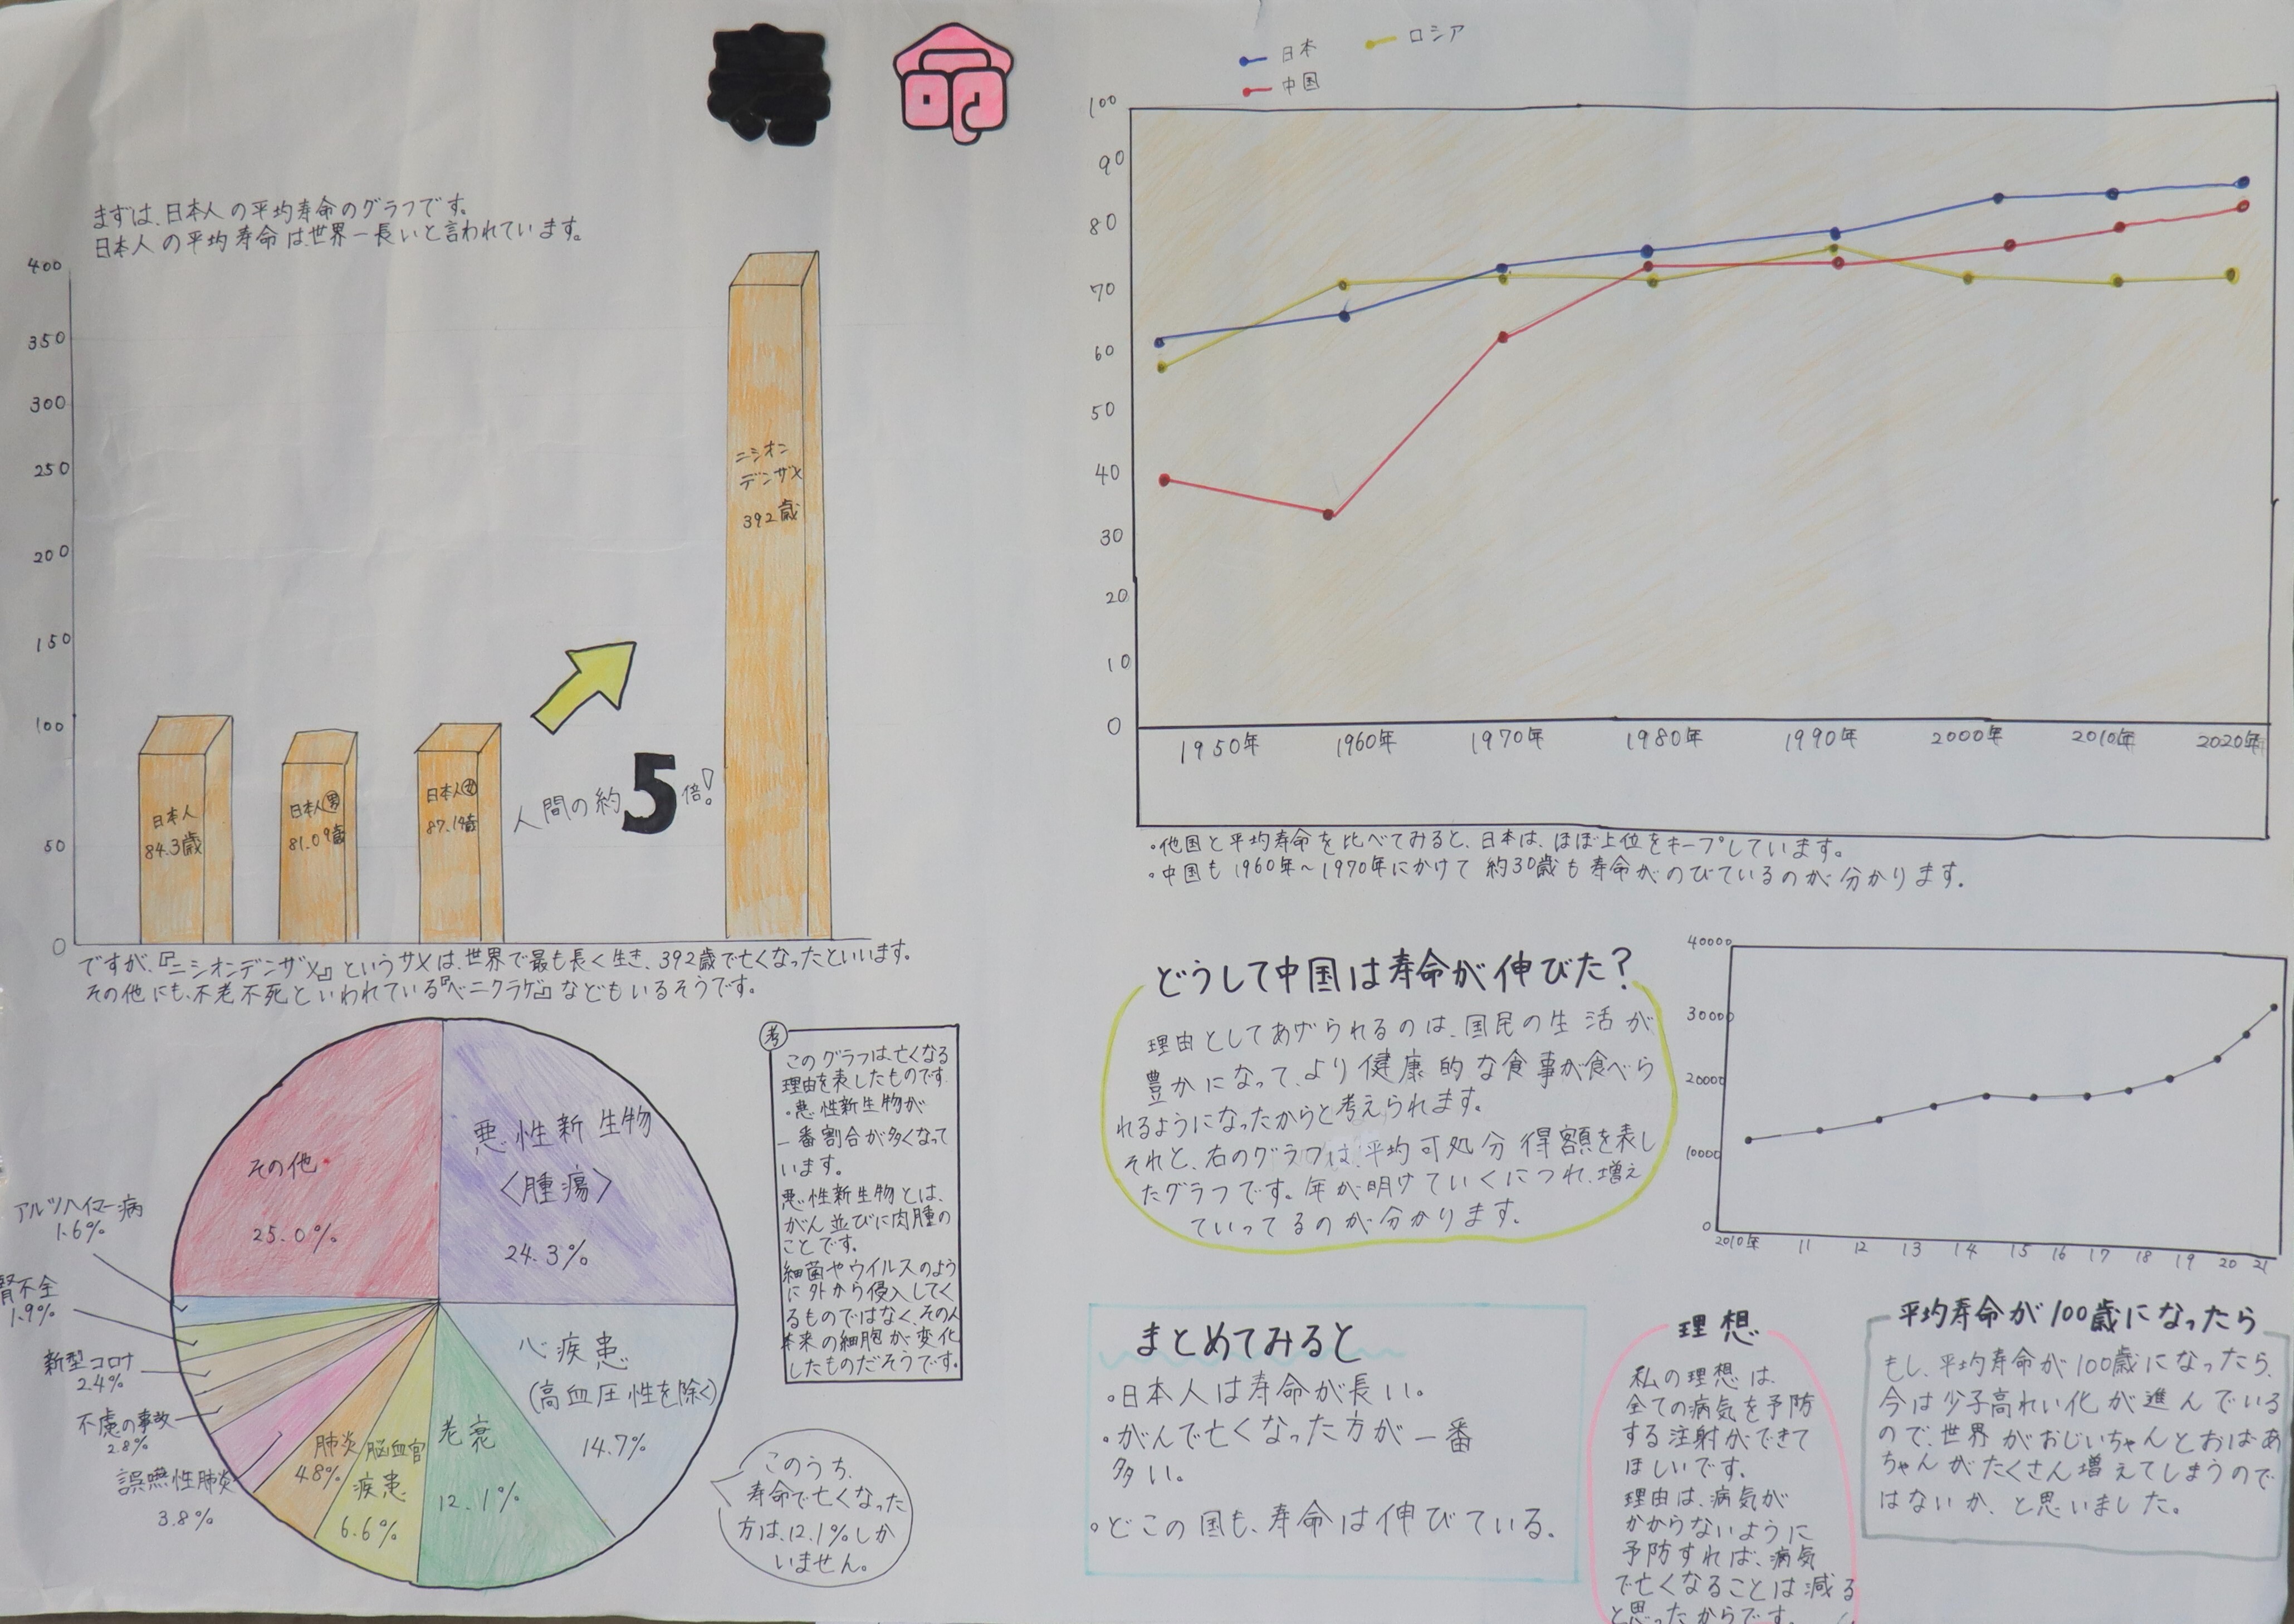 命
まずは、日本人の平均寿命のグラフです。
日本人の平均寿命は世界一長いと言われています。
400
350
300
250
200
150
100
50
0
日本人
84.3歳
日本人男
81.09歳
日本人女
87.14歳
人間の約5倍!
ニシオン
デンザメ
392歳
ですが、『ニシオンデンザメ』というサメは、世界で最も長く生き、392歳で亡くなったといいます。
その他にも、不老不死といわれている『ベニクラゲ』などもいるそうです。
悪性新生物
〈腫瘍〉
24.3%
心疾患
(高血圧性を除く)
14.7%
老衰
12.1%
脳血管
疾患
6.6%
肺炎
4.8%
誤嚥性肺炎
3.8%
不慮の事故
2.8%
新型コロナ
2.4%
腎不全
1.9%
アルツハイマー病
1.6%
その他
25.0%
考
このグラフは、亡くなる
理由を表したものです。
・悪性新生物が
一番割合が多くなって
います。
悪性新生物とは、
がん並びに肉腫の
ことです。
細菌やウイルスのよう
に外から侵入してく
るものではなく、その人
本来の細胞が変化
したものだそうです。
このうち、
寿命で亡くなった
方は、12.1%しか
いません。
日本
中国
ロシア
100
90
80
70
60
50
40
30
20
10
0
1950年 1960年 1970年 1980年 1990年 2000年 2010年 2020年
・他国と平均寿命を比べてみると、日本は、ほぼ上位をキープしています。
・中国も1960年~1970年にかけて約30歳も寿命がのびているのが分かります。
どうして中国は寿命が伸びた?
理由としてあげられるのは、国民の生活が
豊かになって、より健康的な食事が食べら
れるようになったからと考えられます。
それと、右のグラフは、平均可処分得額を表し
たグラフです。年が明けていくにつれ、増え
ていってるのが分かります。
40000
30000
20000
10000
0
2010年 11 12 13 14 15 16 17 18 19 20 21
まとめてみると
・日本人は寿命が長い。
・がんで亡くなった方が一番
多い。
・どこの国も、寿命は伸びている。
理想
私の理想は、
全ての病気を予防
する注射ができて
ほしいです。
理由は、病気が
かからないように
予防すれば、病気
で亡くなることは減る
と思ったからです。
平均寿命が100歳になったら
もし、平均寿命が100歳になったら、
今は少子高れい化が進んでいる
ので、世界がおじいちゃんとおばあ
ちゃんがたくさん増えてしまうので
はないか、と思いました。